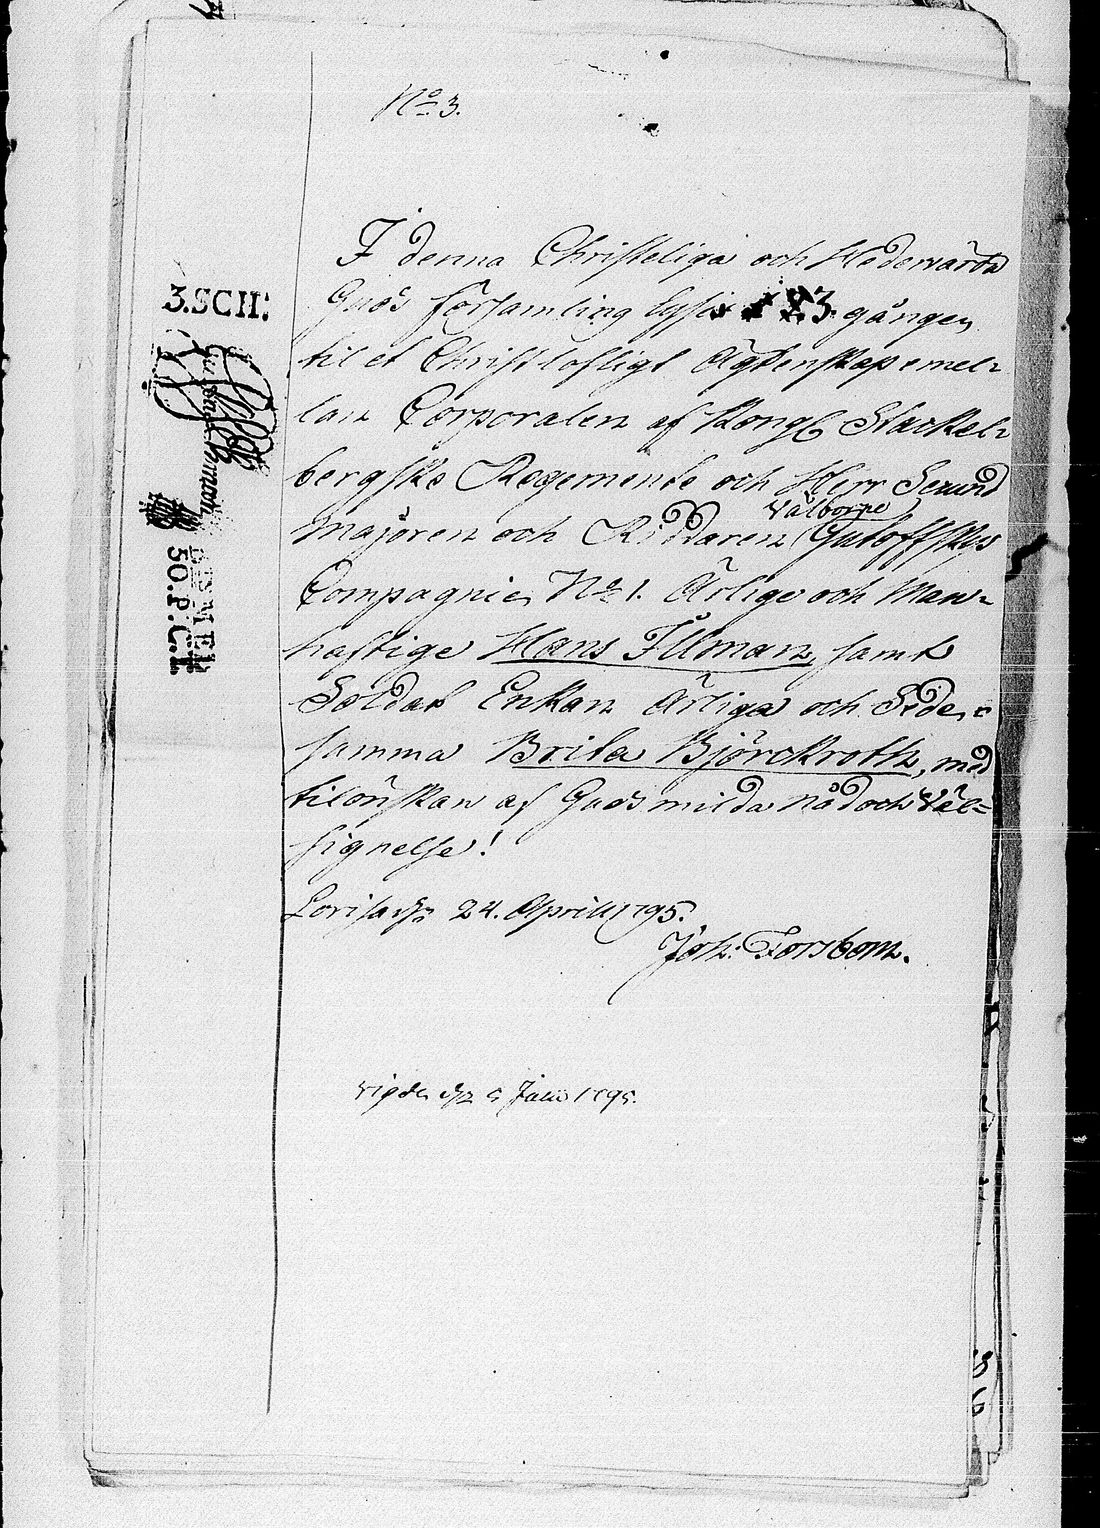 No. 3.
I denna Christeliga och Hedervärda
Guds församling lyses 3. gången
til et Christlofligt Ägtenskap emel=
lan Corporalen af Kongl Stackel=
bergske Regemente och Herr Secund
Majoren och Riddaren Gutoffskys
välborne
Compagnie No 1. Ärlige och Man=
haftige Hans Illman, samt
Soldat Enkan Ärliga och Sede=
samma Brita Björckroth, med
tilönskan af Guds milda nåd och Väl=
signelse!
Lovisa d. 24. April 1795.
Joh: Forsbom.
vigde d. 5 Julii 1795.
3.SCH:
50.P.C.T